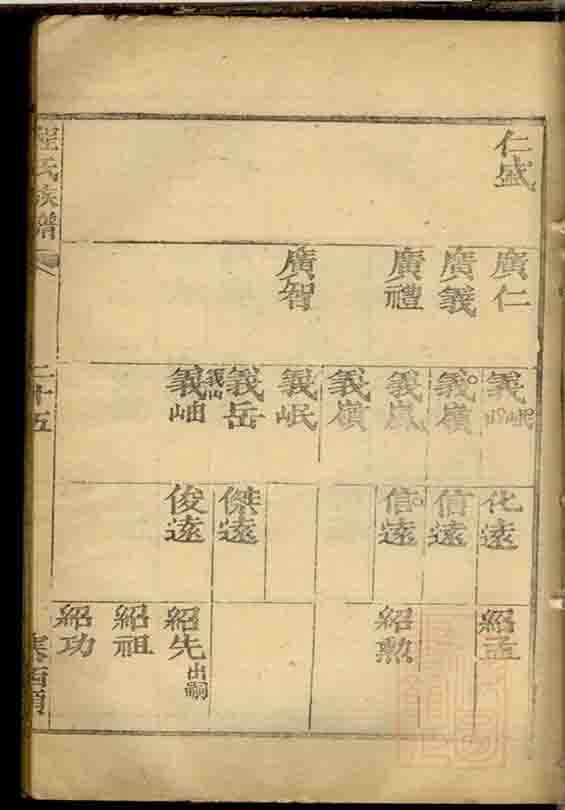 仁盛
廣仁
廣義
廣禮
廣智
義
義嶺
義嵐
義嶺
義岷
義岳
義山
義岫
化遠
信遠
信遠
傑遠
俊遠
紹孟
紹勲
紹先 出嗣
紹祖
紹功
程氏族譜
二十五